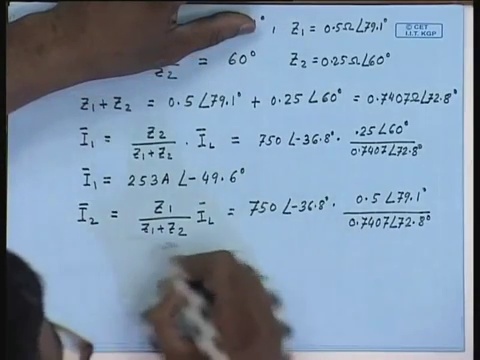 , Z₁ = 0.5Ω∠79.1°
© CET
I.I.T. KGP
Z₂ = 60° Z₂ = 0.25Ω∠60°
Z₁ + Z₂ = 0.5∠79.1° + 0.25∠60° = 0.7407Ω∠72.8°
Ī₁ = Z₂/(Z₁+Z₂) · Ī_L = 750∠-36.8° · .25∠60°/0.7407∠72.8°
Ī₁ = 253A∠-49.6°
Ī₂ = Z₁/(Z₁+Z₂) Ī_L = 750∠-36.8° · 0.5∠79.1°/0.7407∠72.8°